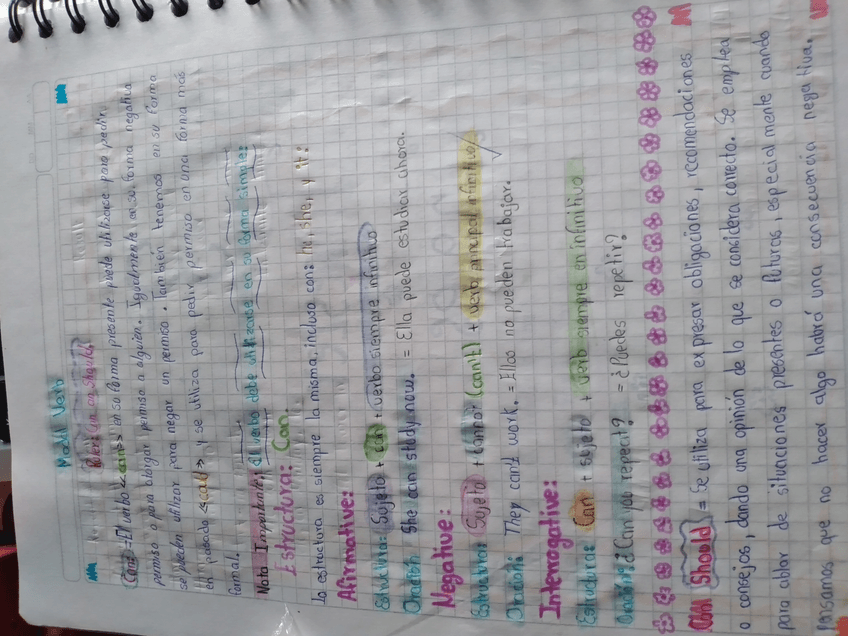 Modal Verb
Can: El verbo <<can>> en su forma presente puede utilizarse para pedir
permiso o para otorgar permiso a alguien. Igualmente en su forma negativa
se pueden utilizar para negar un permiso. También tenemos en su forma
en pasado << >> y se utiliza para pedir permiso en una forma más
formal.
Nota Importante: El verbo debe utilizarse en su forma simple:
Estructura: Can
La estructura es siempre la misma, incluso con: he, she, y it:
Afirmative:
Estructura: Sujeto + can + verbo siempre infinitivo
Oración: She can study now. = Ella puede estudiar ahora.
Negative:
Estructura: Sujeto + cannot (can't) + verbo principal infinitivo
Oración: They can't work. = Ellos no pueden trabajar.
Interrogative:
Estructura: Can + sujeto + verbo siempre en infinitivo
Oración: ¿Can you repeat? = ¿Puedes repetir?
Should = Se utiliza para expresar obligaciones, recomendaciones
o consejos, dando una opinión de lo que se considera correcto. Se emplea
para ablar de situaciones presentes o futuras, especialmente cuando
pensamos que no hacer algo habrá una consecuencia negativa.